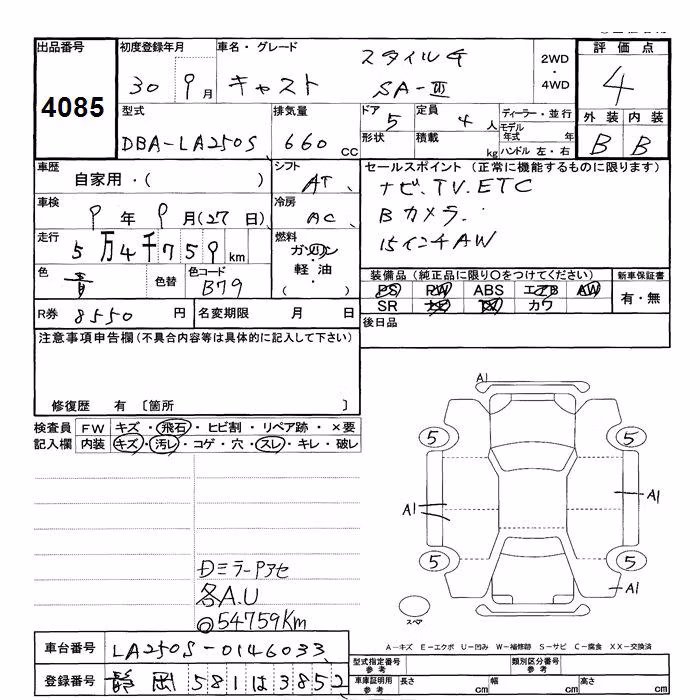 出品番号 初度登録年月 車名・グレード 評価点
4085 30 9月 キャスト スタイルG SA-Ⅲ 2WD・4WD 4
型式 排気量 ドア 定員 ディーラー・並行 外装 内装
DBA-LA250S 660 cc 5 4人 モデル年式 年 B B
形状 積載 kg ハンドル 左・右
車歴 自家用・( ) シフト AT セールスポイント (正常に機能するものに限ります)
車検 9年 9月(27日) 冷房 AC ナビ、TV、ETC
Bカメラ
走行 5万4千759km 燃料 ガソリン・軽油・( ) 15インチAW
色 青 色替 色コード B79 装備品 (純正品に限り〇をつけてください) 新車保証書
PS PW ABS エアB AW 有・無
SR ナビ TV カワ
R券 8550円 名変期限 月 日 後日品
注意事項申告欄 (不具合内容等は具体的に記入して下さい)
修復歴 有 〔箇所 〕
検査員 FW キズ・飛石・ヒビ割・リペア跡・×要
記入欄 内装 キズ・汚レ・コゲ・穴・スレ・キレ・破レ
A1
5 5
A1 A1
5 5
A1
スペア
ミラーPアセ
各A.U
54759Km
A-キズ E-エクボ U-凹み W-補修跡 S-サビ C-腐食 XX-交換済
車台番号 LA250S-0146033
型式指定番号 参考 類別区分番号 参考
登録番号 静岡 581 は 3852
車庫証明用 参考 長さ cm 幅 cm 高さ cm